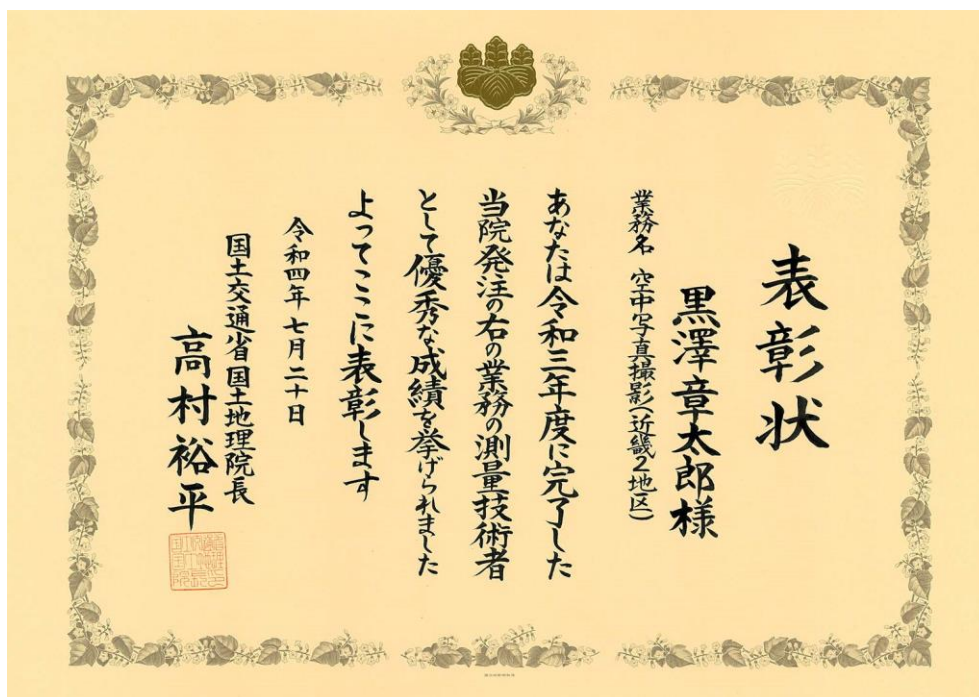 表彰状
黒澤章太郎様
業務名 空中写真撮影(近畿2地区)
あなたは令和三年度に完了した
当院発注の右の業務の測量技術者
として優秀な成績を挙げられました
よってここに表彰します
令和四年七月二十日
国土交通省国土地理院長
高村裕平